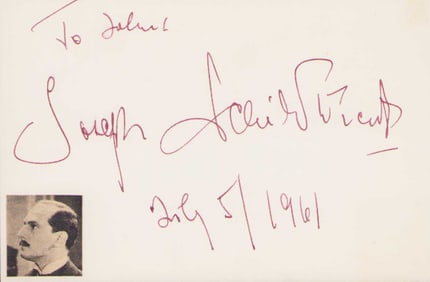 To John:
Joseph Schildkraut
July 5/1961